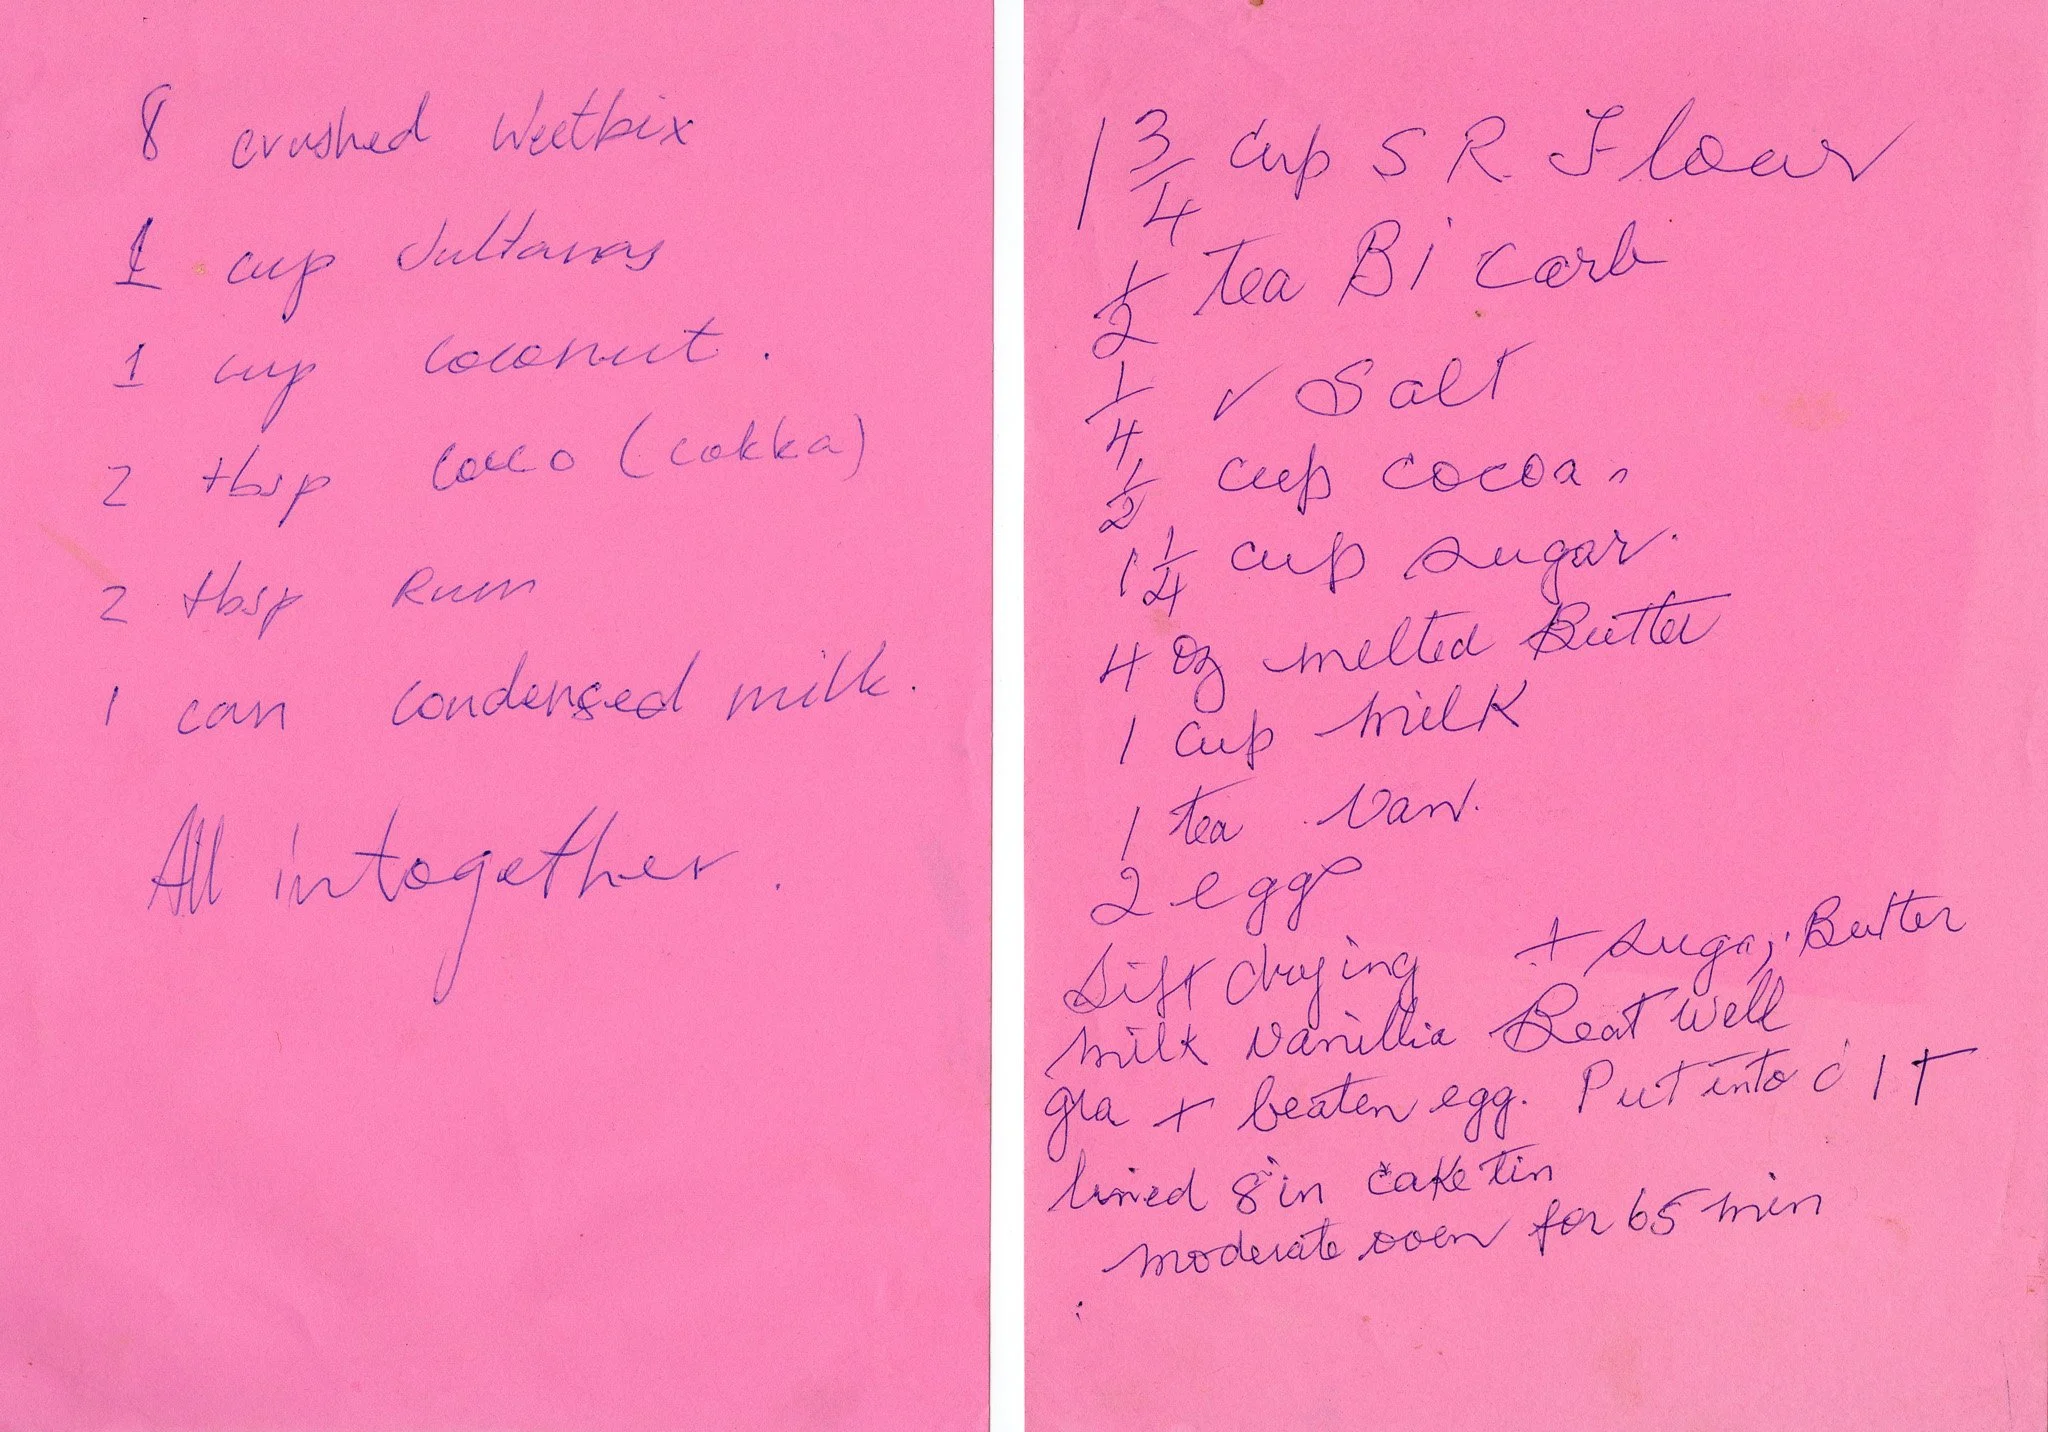 8 crushed Weetbix
1 cup Sultanas
1 cup coconut.
2 tbsp coco (cokka)
2 tbsp Rum
1 can condensed milk.
All intogether.
1 3/4 cup S R Flour
1/2 tea Bi Carb
1/4 ✓ Salt
1/2 cup cocoa
1 1/4 cup sugar.
4 oz melted Butter
1 cup milk
1 tea Van.
2 eggs
Sift dry ing + sugar, Butter
milk vanillia Beat well
gra + beaten egg. Put into
lined 8 in cake tin
moderate oven for 65 min